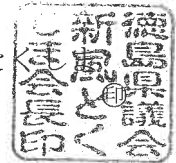 徳島県議会
新風とく
しま会長印
㊞